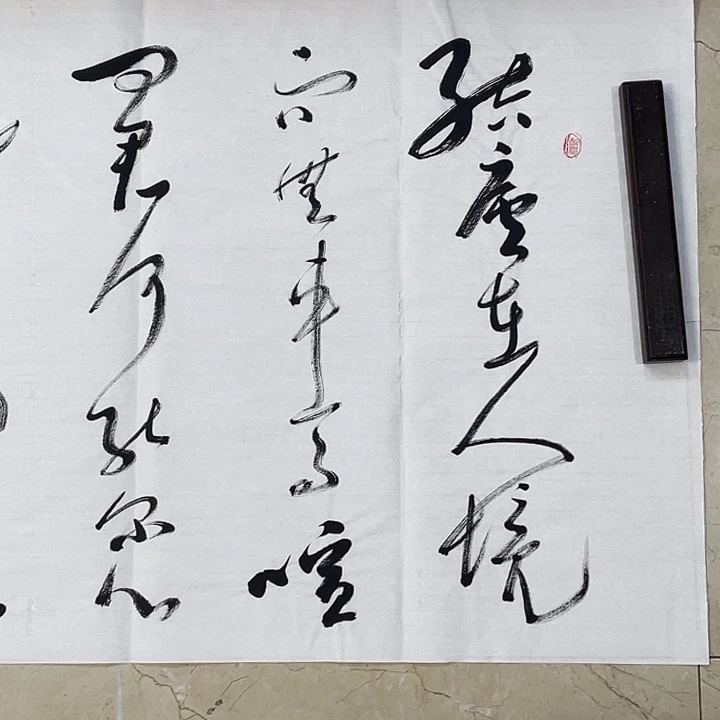 結廬在人境
而無車馬喧
問君何能尔心